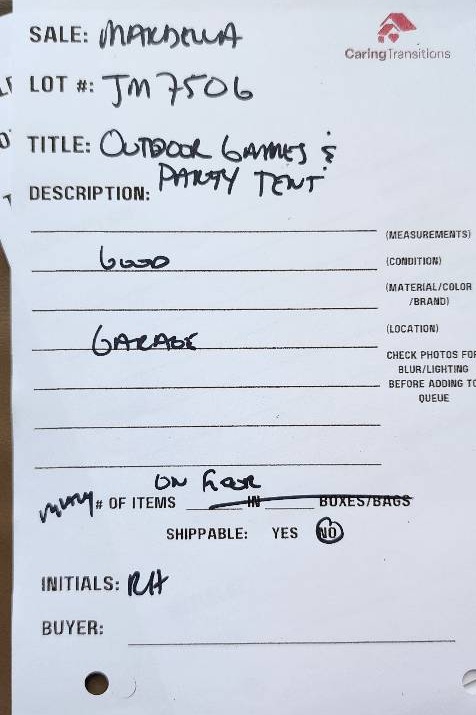 SALE: MANDELLA
CaringTransitions
LOT #: JM7506
TITLE: OUTDOOR GAMES &
PARTY TENT
DESCRIPTION:
(MEASUREMENTS)
GOOD (CONDITION)
(MATERIAL/COLOR
/BRAND)
GARAGE (LOCATION)
CHECK PHOTOS FOR
BLUR/LIGHTING
BEFORE ADDING TO
QUEUE
ON FLOOR
MANY # OF ITEMS IN BOXES/BAGS
SHIPPABLE: YES NO
INITIALS: RH
BUYER: